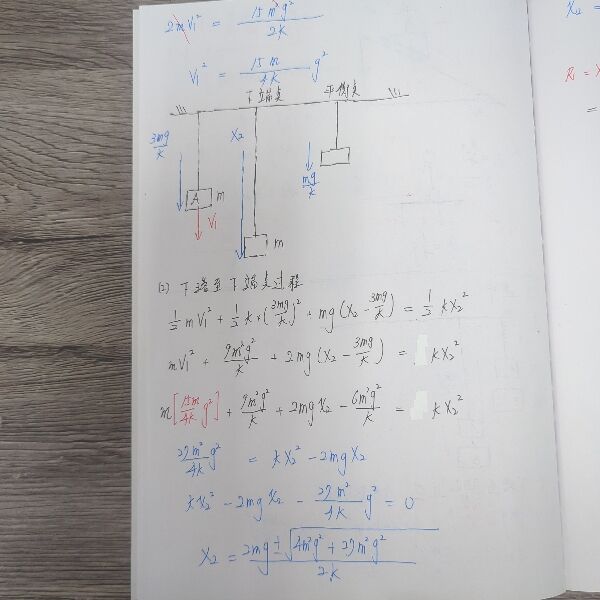 2mV₁² = 15m²g²/2k
V₁² = 15m/4k g²
下端点 平衡点
3mg/k
X₂
mg/k
A m
V₁
m
(2) 下落至下端点过程
1/2 mV₁² + 1/2 k×(3mg/k)² + mg(X₂ - 3mg/k) = 1/2 kX₂²
mV₁² + 9m²g²/k + 2mg(X₂ - 3mg/k) = kX₂²
m[15m/4k g²] + 9m²g²/k + 2mgX₂ - 6m²g²/k = kX₂²
27m²/4k g² = kX₂² - 2mgX₂
kX₂² - 2mgX₂ - 27m²/4k g² = 0
X₂ = 2mg ± √(4m²g² + 27m²g²)/2k
X₂ =
=